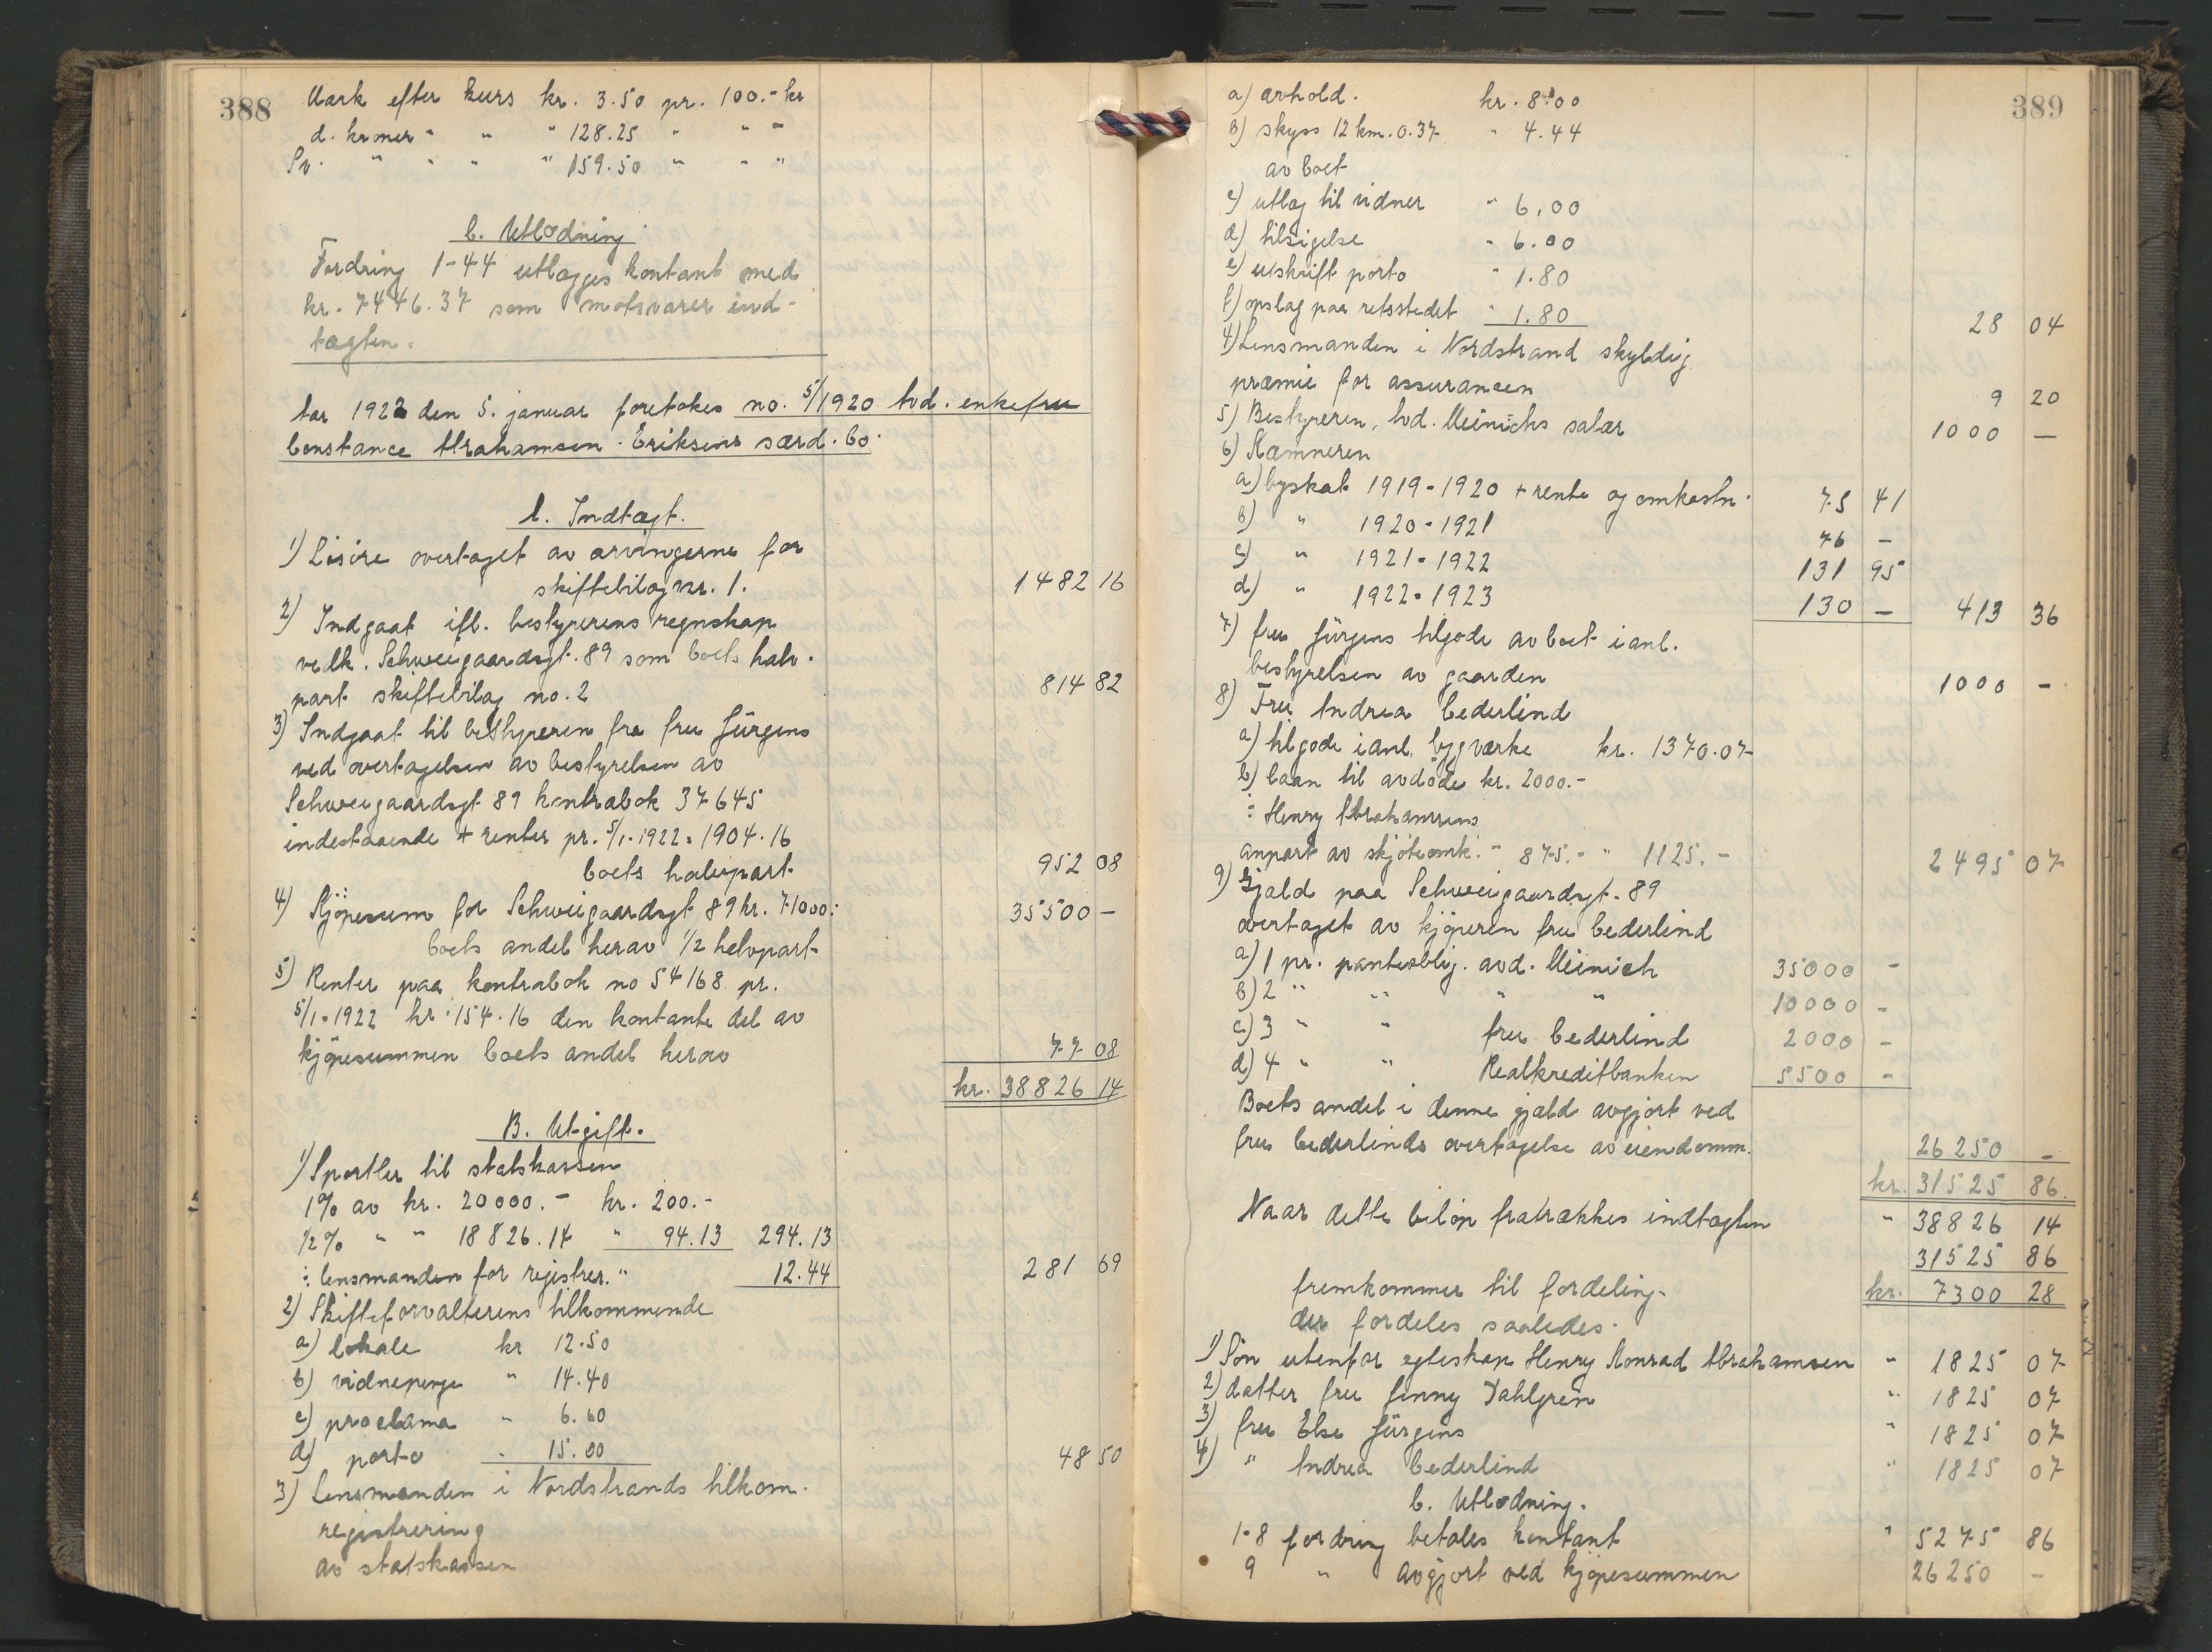 388
Mark efter kurs kr. 3.50 pr. 100.- kr
d. kroner " " " 128.25 " " "
Sv. " " " " 159.50 " " "
C. Utlodning
Fordring 1-44 utlægges kontant med
kr. 7446.37 som motsvarer ind-
tægten.
Aar 1922 den 5. januar foretokes no. 5/1920 avd. enkefru
Constance Abrahamsen-Eriksens særd. bo.
A. Indtægt.
1) Løsøre overtaget av arvingerne for
skiftebilag nr. 1. 1482 16
2) Indgaat ifl. bestyrerens regnskap
vedk. Schweigaardsgt. 89 som boets halv-
part skiftebilag no. 2 814 82
3) Indgaat til bestyreren fra fru Jürgens
ved overtagelsen av bestyrelsen av
Schweigaardsgt 89 kontrabok 37645
indestaaende + renter pr. 5/1-1922 = 1904.16
boets halvpart 952 08
4) Kjöpesum for Schweigaardsgt 89 kr. 71000.-
boets andel herav 1/2 halvpart 35500 -
5) Renter paa kontrabok no 54168 pr.
5/1-1922 kr. 154.16 den kontante del av
kjöpesummen boets andel herav 77 08
kr. 38826 14
B. Utgift.
1) Sportler til statskassen
1% av kr. 20000.- kr. 200.-
1/2% " " 18826.14 " 94.13 294.13
÷ lensmanden for registrer. " 12.44 281 69
2) Skifteforvalterens tilkommende
a) lokale kr 12.50
b) vidnepenge " 14.40
c) proclama " 6.60
d) porto - 15.00 48 50
3) Lensmanden i Nordstrands tilkom.
registrering
av statskassen
389
a) avhold. kr. 8.00
b) skyss 12 km. 0.37 " 4.44
av boet
c) utlæg til vidner " 6.00
d) tilsigelse " 6.00
e) utskrift porto " 1.80
f) opslag paa retsstedet " 1.80 28 04
4) Lensmanden i Nordstrand skyldig
præmie for assurancen 9 20
5) Bestyreren, avd. Meinichs salær 1000 -
6) Kæmneren
a) byskat 1919-1920 + rente og omkostn. 75 41
b) " 1920-1921 76 -
c) " 1921-1922 131 95
d) " 1922-1923 130 - 413 36
7) fru Jürgens tilgode av boet i anl.
bestyrelsen av gaarden 1000 -
8) Fru Andrea Cederlind
a) tilgode i anl. bygværke kr. 1370.07
b) laan til avdöde kr. 2000.-
÷ Henry Abrahamsens
anpart av skjöteomk. - 875.- " 1125.- 2495 07
9) Gjæld paa Schweigaardsgt. 89
overtaget av kjöperen fru Cederlind
a) 1 pr. panteoblig. avd. Meinich 35000 -
b) 2 " " " " 10000 -
c) 3 " " fru Cederlind 2000 -
d) 4 " " Realkreditbanken 5500 -
Boets andel i denne gjæld avgjort ved
fru Cederlinds overtagelse av eiendomm. 26250 -
kr. 31525 86.
Naar dette belöp fratrækkes indtægten " 38826 14
31525 86
fremkommer til fordeling. kr. 7300 28
der fordeles saaledes.
1) Sön utenfor egteskap Henry Konrad Abrahamsen " 1825 07
2) datter fru Jenny Dahlgren " 1825 07
3) fru Else Jürgens " 1825 07
4) " Andrea Cederlind " 1825 07
C. Utlodning.
1-8 fordring betales kontant " 5275 86
9 " avgjort ved kjöpesummen 26250 -